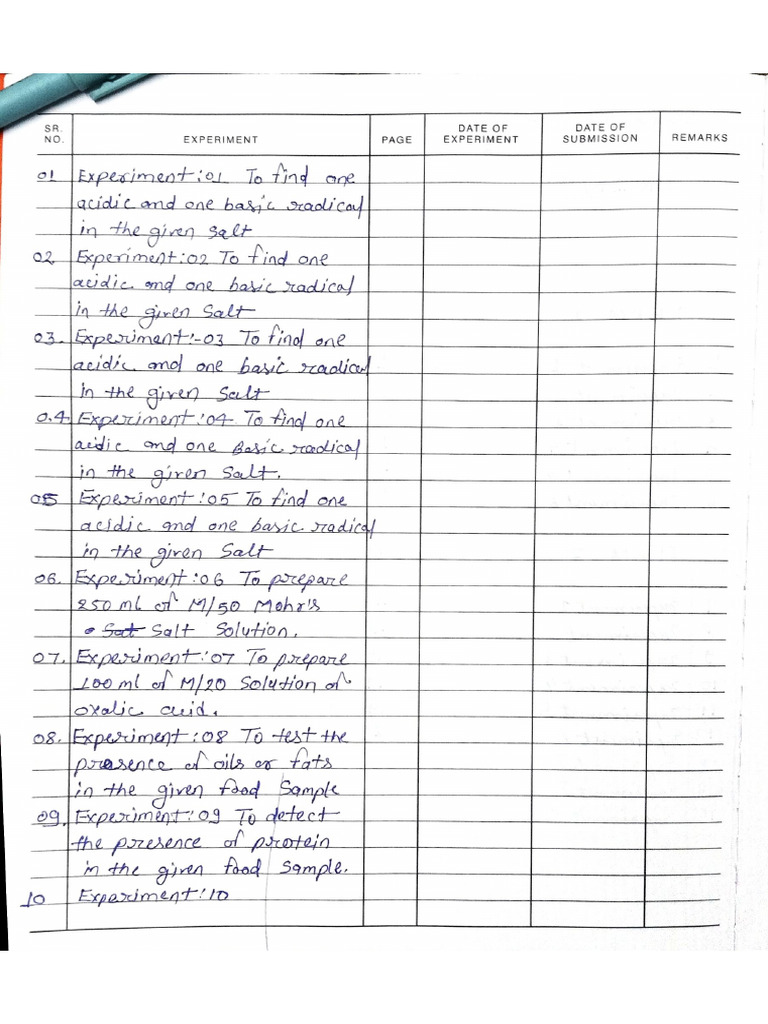 SR. NO. EXPERIMENT PAGE DATE OF EXPERIMENT DATE OF SUBMISSION REMARKS
01 Experiment:01 To find one
acidic and one basic radical
in the given salt
02 Experiment:02 To find one
acidic and one basic radical
in the given Salt
03. Experiment:-03 To find one
acidic and one basic radical
in the given Salt
0.4. Experiment:04 To find one
acidic and one Basic radical
in the given Salt.
05 Experiment:05 To find one
acidic and one basic radical
in the given Salt
06. Experiment:06 To prepare
250 ml of M/50 Mohr's
Salt Solution.
07. Experiment:07 To prepare
100 ml of M/20 Solution of
oxalic acid.
08. Experiment:08 To test the
presence of oils or fats
in the given food Sample
09. Experiment:09 To detect
the presence of protein
in the given food Sample.
10 Experiment:10